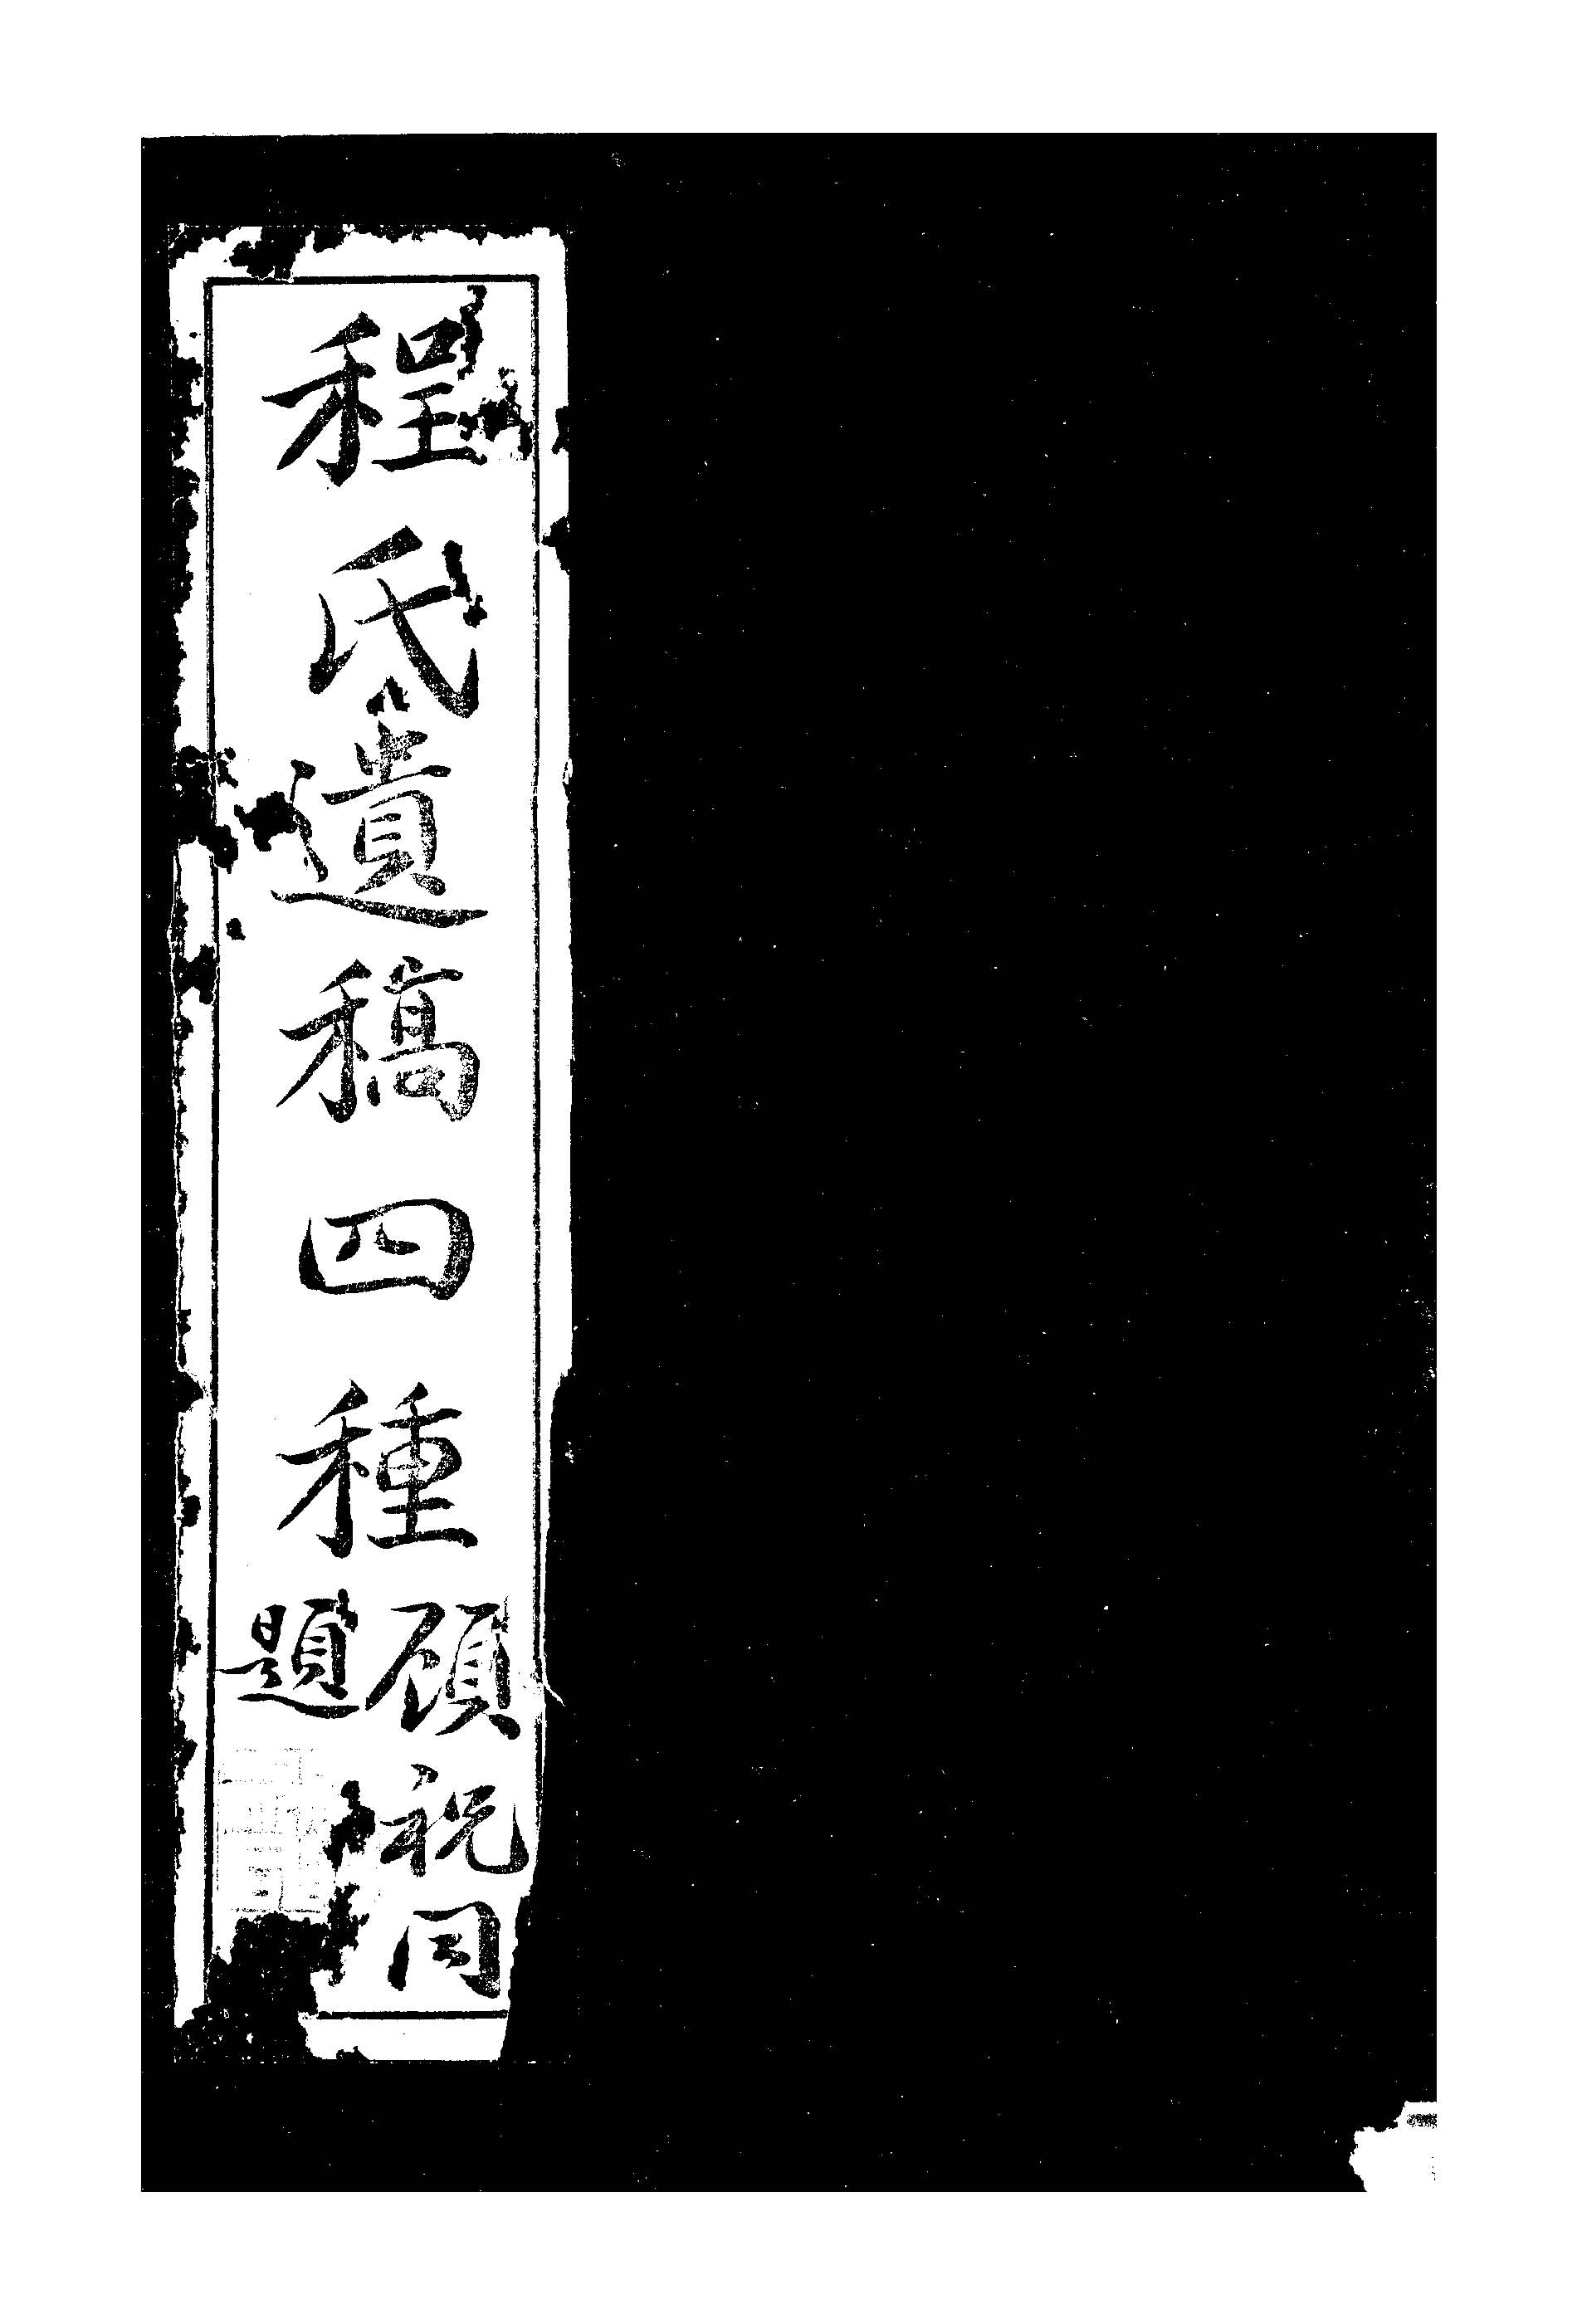 程氏遺稿四種
顧祝同
題